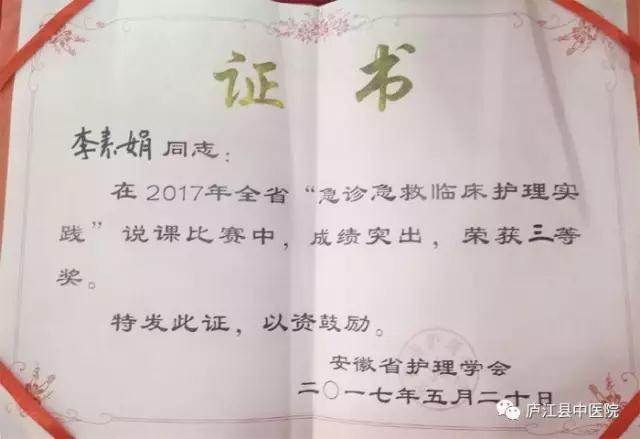 证书
李素娟同志：
在2017年全省“急诊急救临床护理实
践”说课比赛中，成绩突出，荣获三等
奖。
特发此证，以资鼓励。
安徽省护理学会
二〇一七年五月二十日
庐江县中医院